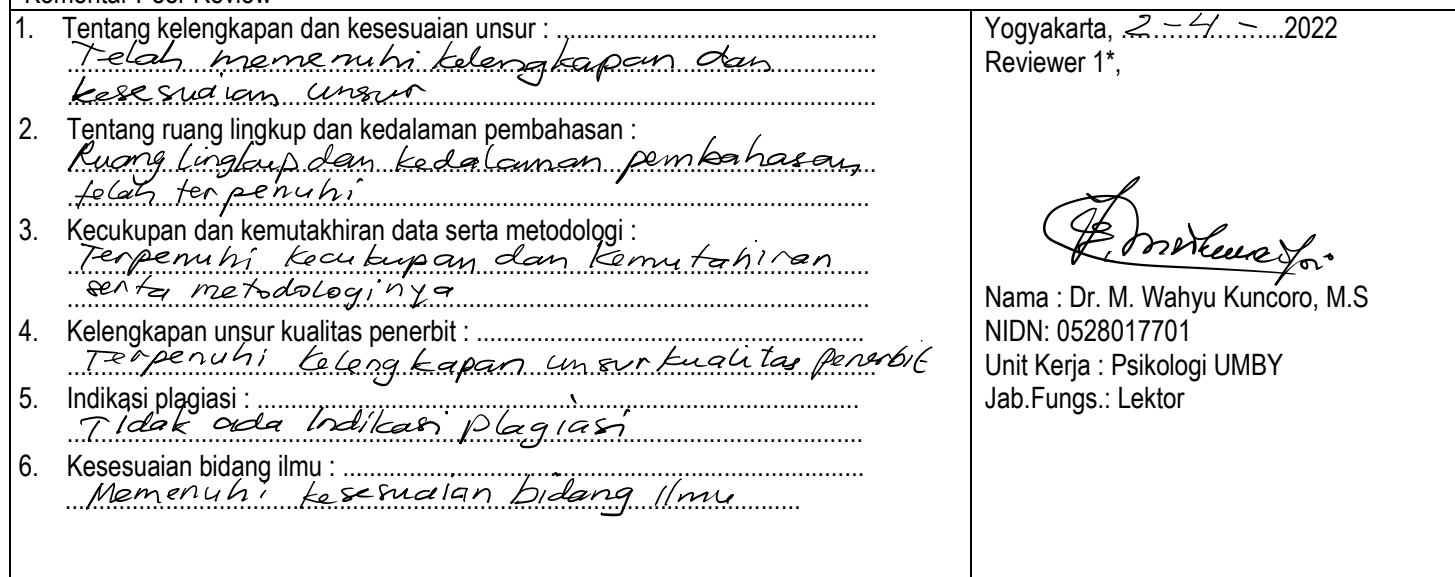 Komentar Peer Review
1. Tentang kelengkapan dan kesesuaian unsur : ................................................
Telah memenuhi kelengkapan dan
kesesuaian unsur
2. Tentang ruang lingkup dan kedalaman pembahasan :
Ruang lingkup dan kedalaman pembahasan,
telah terpenuhi
3. Kecukupan dan kemutakhiran data serta metodologi :
Terpenuhi kecukupan dan kemutahiran
serta metodologinya
4. Kelengkapan unsur kualitas penerbit : ..........................................................
Terpenuhi kelengkapan unsur kualitas penerbit
5. Indikasi plagiasi : ..........................................................................................
Tidak ada indikasi plagiasi
6. Kesesuaian bidang ilmu : ..............................................................................
Memenuhi kesesuaian bidang ilmu
Yogyakarta, 2 - 4 - 2022
Reviewer 1*,
Nama : Dr. M. Wahyu Kuncoro, M.S
NIDN: 0528017701
Unit Kerja : Psikologi UMBY
Jab.Fungs.: Lektor